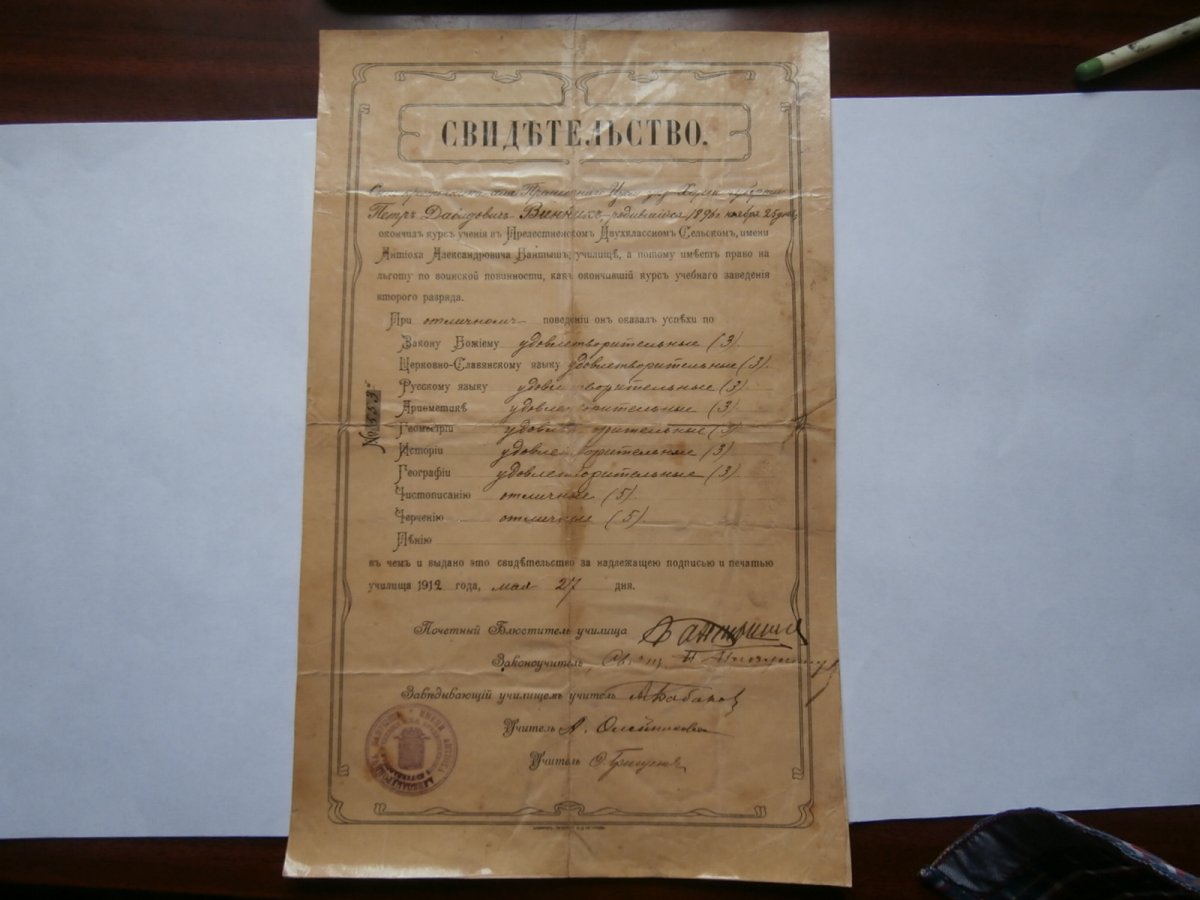 СВИДѢТЕЛЬСТВО.
Изюм уѣзд Харьк губерніи
Петръ Давидовичъ Винникъ, родившійся 1896 г ноября 25 дня,
окончилъ курсъ ученія въ Прелестненскомъ Двухклассномъ Сельскомъ, имени
Антіоха Александровича Бантышъ, училищѣ, а потому имѣетъ право на
льготу по воинской повинности, какъ окончившій курсъ учебнаго заведенія
второго разряда.
При отличномъ поведеніи онъ оказалъ успѣхи по
Закону Божіему удовлетворительные (3)
Церковно-Славянскому языку удовлетворительные (3)
Русскому языку удовлетворительные (3)
Ариѳметикѣ удовлетворительные (3)
Геометріи удовлетворительные (3)
Исторіи удовлетворительные (3)
Географіи удовлетворительные (3)
Чистописанію отличные (5)
Черченію отличные (5)
Пѣнію
въ чемъ и выдано это свидѣтельство за надлежащею подписью и печатью
училища 1912 года, мая 27 дня.
Почетный Блюститель училища
Законоучитель, Свящ. П.
Завѣдывающій училищемъ учитель
Учитель А. Олейников
Учитель
№ 333